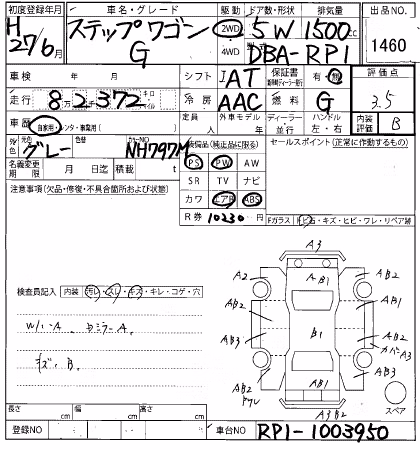 初度登録年月 車名・グレード 駆動 ドア数・形状 排気量 出品NO
H27/6月 ステップワゴン G 2WD 4WD 5W 1500cc 1460
型式 DBA-RP1
車検 年 月 シフト IAT 保証書 有 無 評価点
走行 82,372 km 冷房 AAC 燃料 G 3.5
車歴 自家用・レンタ・事業用( ) 定員 人 外車モデル 年 ディーラー・並行 ハンドル 左・右 内装評価 B
外色 元色 グレー 色替 カラーNO NH797M 装備品(純正品に限る) セールスポイント(正常に作動するもの)
名義変更期限 月 日迄 積載 t PS PW AW
注意事項(欠品・修復・不具合箇所および状態) SR TV ナビ
カワ エアB ABS
R券 10230円
Fガラス トビ石・キズ・ヒビ・ワレ・リペア跡
検査員記入 内装 汚レ・スレ・キズ・キレ・コゲ・穴
W/ハA. ロミラーA.
キズ、B.
A3
A2 AB1 AB2
AB2 AB1
AB3 B1 AB2
カバーA3
AB2 AB3
AB1
A3B2
スペア
長さ cm 幅 cm 高さ cm
登録NO 車台NO RP1-1003950